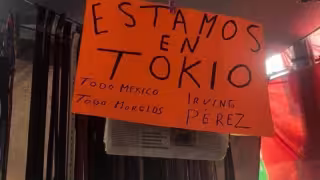 ESTAMOS
EN
TOKIO
TODO MEXICO
TODO MORGIDS
IRVING
PÉREZ